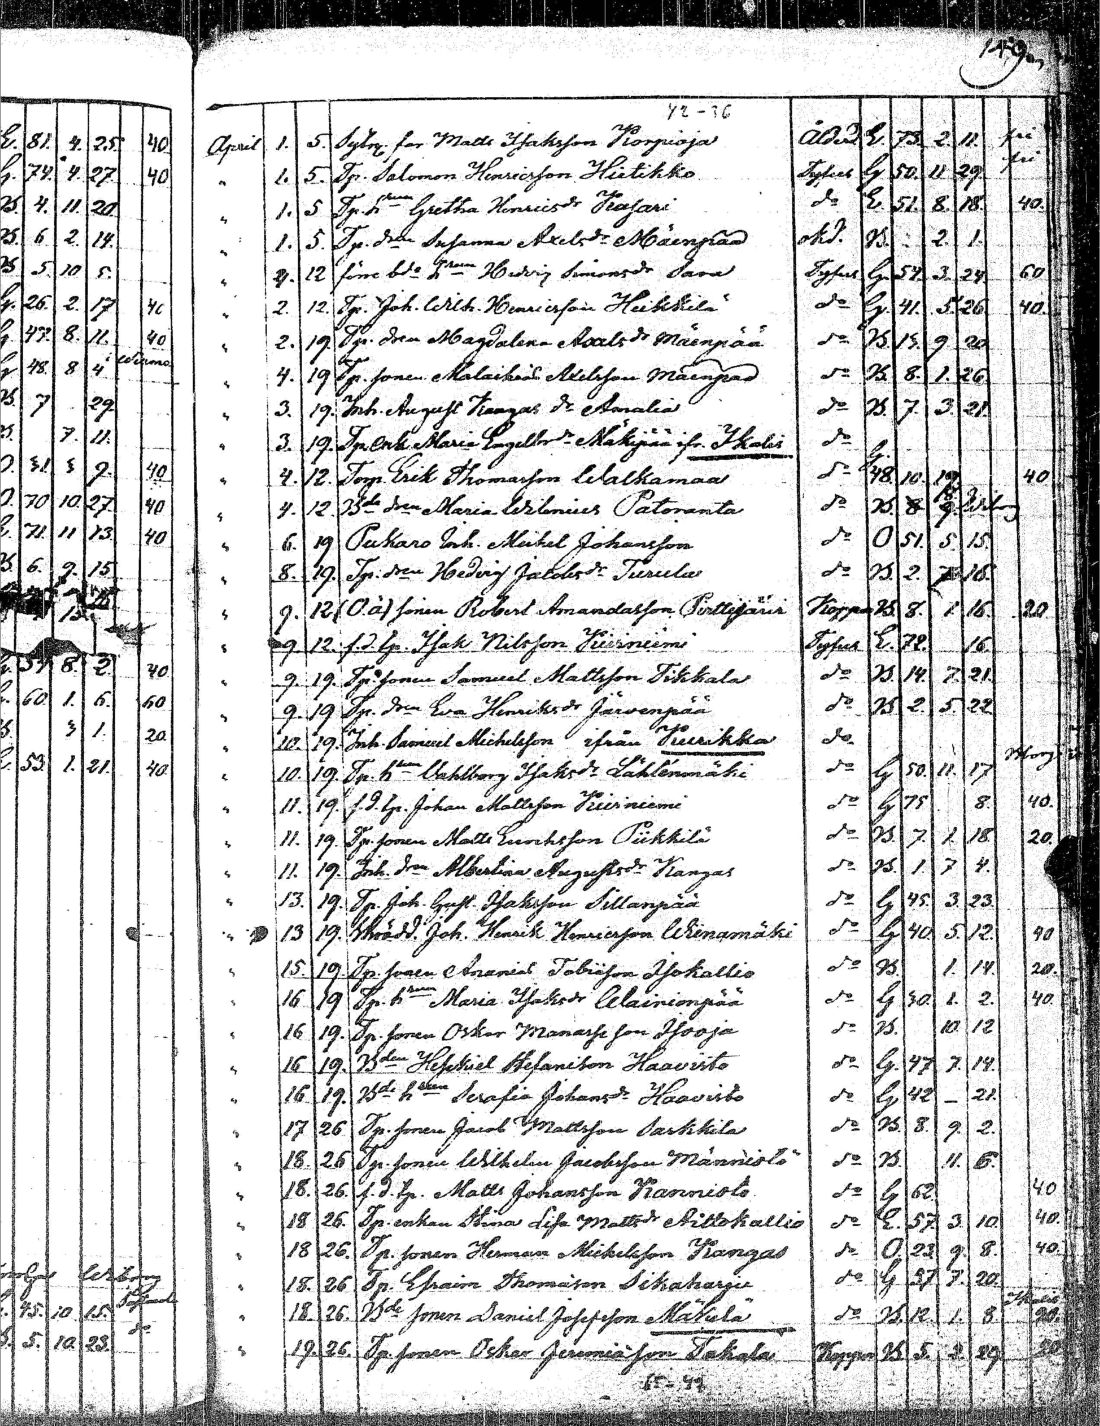 149.
E. 81. 4. 25. 40
G. 74. 4. 27. 40
B. 4. 11. 20.
B. 6 2. 14.
B 5. 10 5.
G. 26. 2. 17 40
G. 47. 8. 11. 40
G 48. 8 4
B. 7 29.
B. 7. 11.
O. 31. 3 9. 40
O. 70 10. 27. 40
E. 71. 11 13. 40
B. 6. 9. 15.
8. 2. 40
60. 1. 6. 60
3 1. 20.
53. 1. 21. 40.
45. 10 15.
5. 10. 23. do
42-36
April 1. 5. Sytn. far Matts Isaksson Korpioja Ålderd. E. 73. 2. 11. fri
" 1. 5. Tp. Salomon Henricsson Hietikko Tyfus G 50. 11. 29. fri
" 1. 5 Tp. hrun Gretha Henricsdr Kasari do E. 51. 8. 18. 40.
" 1. 5. Tp. dren Susanna Axelsdr Mäenpää okd. B. - 2. 1.
" 4. 12 förre bde hrun Hedvig Simonsdr Sara Tyfus G. 54. 3. 24. 60
" 2. 12. Tp. Joh. Wilh. Henricsson Heikkilä do G. 41. 5. 26. 40.
" 2. 19. Tp. dren Magdalena Axelsdr Mäenpää do B. 13. 9 20
" 4. 19 Tp. sonen Malakias Axelsson Mäenpää do B. 8. 1. 26.
" 3. 19. Inh. August Kangas dr Amalia do B. 7. 3. 21.
" 3. 19. Tp. enk. Maria Engelbr.dr Mäkipää ifr. Ikalis do
" 4. 12. Torp. Erik Thomasson Walkamaa do G. 48. 10. 19. 40
" 4. 12. Bde dren Maria Wilenius Patoranta do B. 8 9.
" 6. 19 Pukaro Inh. Mikel Johansson do O 51. 5. 15.
" 8. 19. Tp. dren Hedvig Jacobsdr Turula do B. 2. 7 16.
" 9. 12 (O.ä) sonen Robert Amandasson Pirttijärvi Koppor B. 8. 1. 16. 20
" 9 12. f.d. tp. Isak Nilsson Kiviniemi Tyfus E. 72. 16.
" 9. 19. Tp. sonen Samuel Mattsson Tikkala do B. 14. 7. 21.
" 9. 19 Tp. dren Eva Henriksdr Järvenpää do B 2. 5. 22
" 10. 19. Inh. Samuel Michelsson ifrån Kurikka do
" 10. 19. Tp. hrun Wahlborg Isaksdr Lähteenmäki do G 50. 11. 17
" 11. 19. f.d. tp. Johan Mattsson Kiviniemi do G 75 8. 40.
" 11. 19. Tp. sonen Matts Piikkilä do B. 7. 1. 18 20.
" 11. 19. Inh. dren Albertina Augustsdr Kangas do B. 1. 7 4.
" 13. 19. Tp. Joh. Gust. Isaksson Sillanpää do G 45. 3. 23.
" 13 19. Skrädd. Joh. Henrik Henricsson Wienamäki do G 40. 5. 12. 40
" 15. 19. Tp. sonen Ananias Tobiisson Isokallio do B. 1. 14. 20.
" 16 19 Tp. hrun Maria Isaksdr Wainionpää do G 30. 1. 2. 40.
" 16 19. Tp. sonen Oskar Manasse son Isooja do B. 10. 12
" 16 19. Bden Heskiel Stefanisson Haavisto do G. 47 7. 14.
" 16 19. Bde hrun Serafia Johansdr Haavisto do G 42 - 21.
" 17 26 Tp. sonen Jacob Mattsson Sarkkila do B. 8. 9. 2.
" 18. 26 Tp. sonen Wilhelm Jacobsson Männistö do B. 11. 6.
" 18. 26. f.d. tp. Matts Johansson Kannisto do G 62. 40
" 18 26. Tp. enkan Stina Lisa Mattsdr Aittokallio do E. 57. 3. 10. 40.
" 18 26. Tp. sonen Herman Michelsson Kangas do O. 23. 9. 8. 40.
" 18. 26 Tp. Efraim Thomasson Sikaharju do G 37 7. 20.
" 18. 26. Bde sonen Daniel Josefsson Mäkelä do B. 12. 1. 8. 20.
" 19. 26. Tp. sonen Oskar Jeremiasson Takala Koppor B. 5. 2. 29. 20